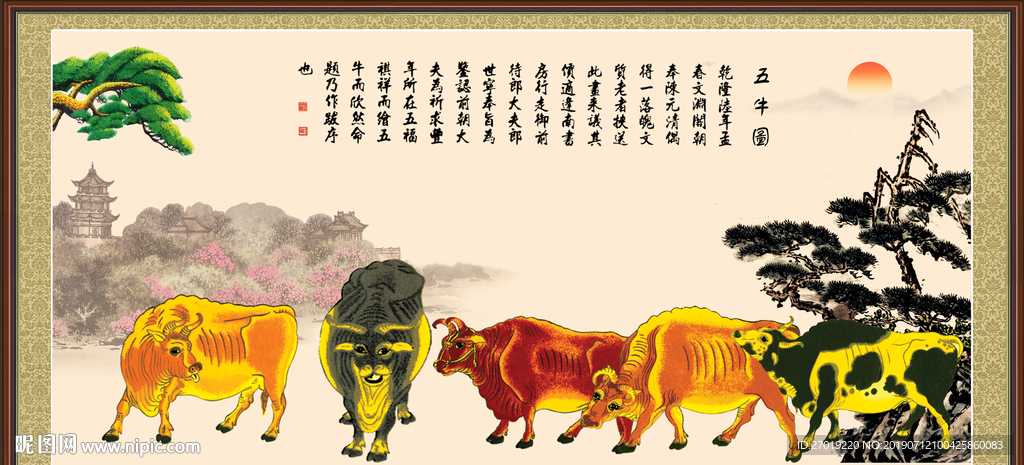 五牛圖
乾隆陸年孟
春文淵閣朝
奉陳元清偶
得一落魄文
質老者挾送
此畫來議其
價適達南書
房行走御前
待郎大夫郎
世寧奉旨為
鑒認前朝大
夫為祈求豐
年所在五福
祺祥而繪五
牛而欣然命
題乃作跋序
也
昵图网 www.nipic.com
ID:27019220 NO:20190712100425860083